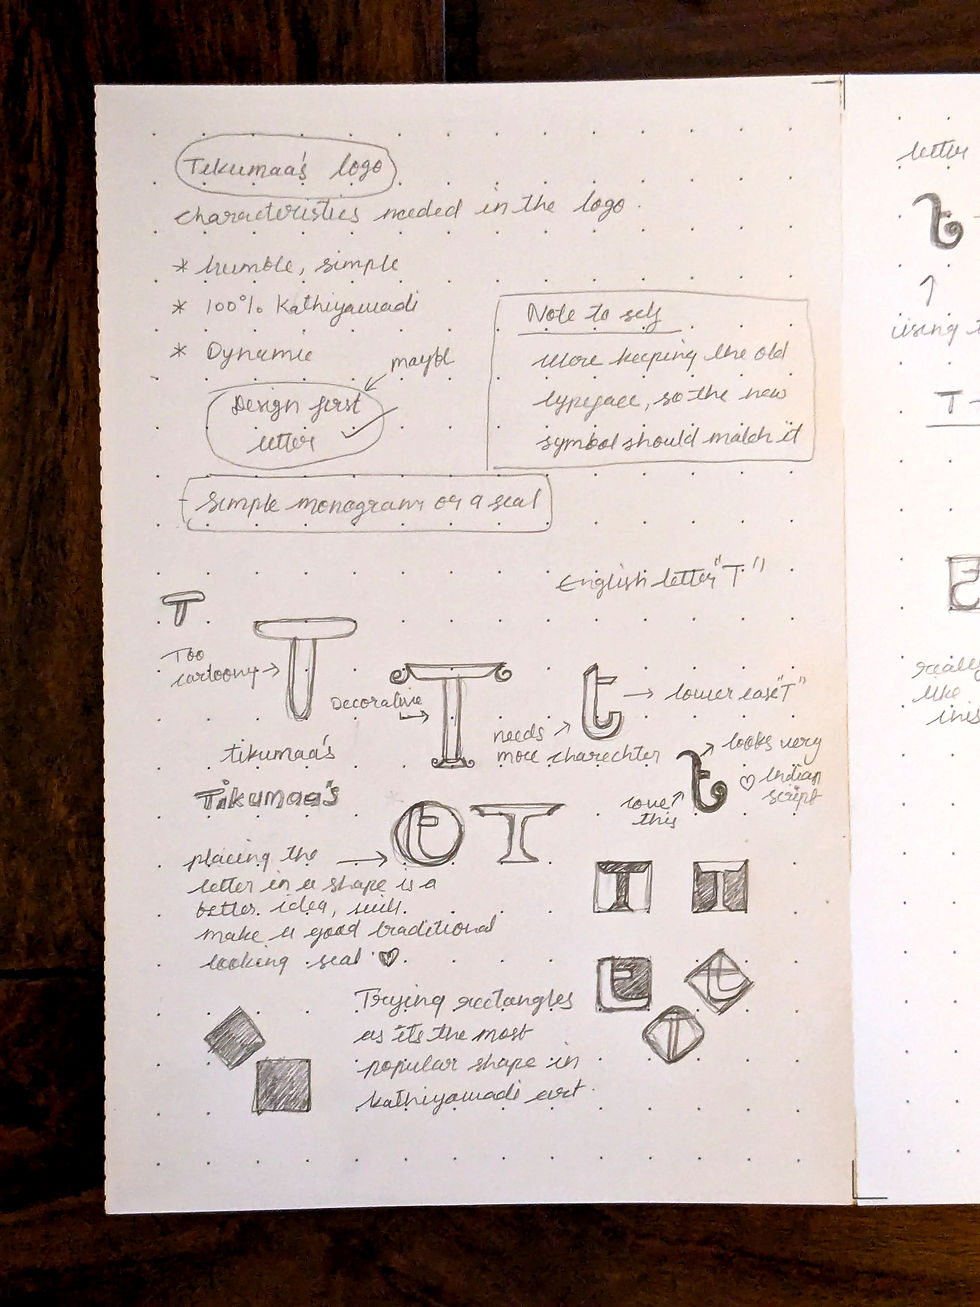 Tikumaa's logo
characteristics needed in the logo.
* humble, simple
* 100% Kathiyawadi
* Dynamic
maybe
Design first
letter
Note to self
were keeping the old
typeface, so the new
symbol should match it
Simple monogram or a seal
English letter "T"
T
Too
cartoony
T
Decorative
T
t
lower case "T"
needs
more charechter
tikumaa's
Tikumaa's
looks very
Indian
script
love
this
t
t
T
placing the
letter in a shape is a
better idea, will
make a good traditional
looking seal
T
T
t
t
T
Trying rectangles
as its the most
popular shape in
kathiyawadi art.
letter
t
using
T
really
like
this